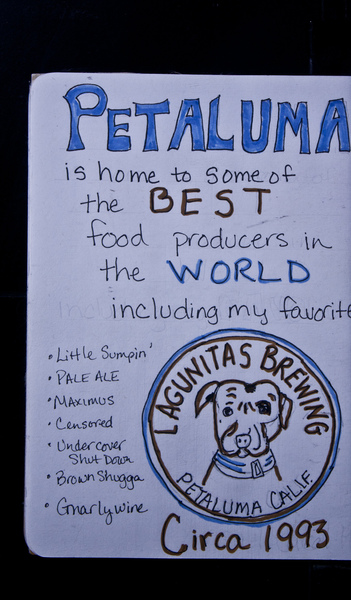 PETALUMA
is home to some of
the BEST
food producers in
the WORLD
including my favorite
• Little Sumpin'
• PALE ALE
• MAXIMUS
• Censored
• Undercover
Shut Down
• Brown Shugga
• Gnarlywine
LAGUNITAS BREWING
PETALUMA CALIF.
Circa 1993